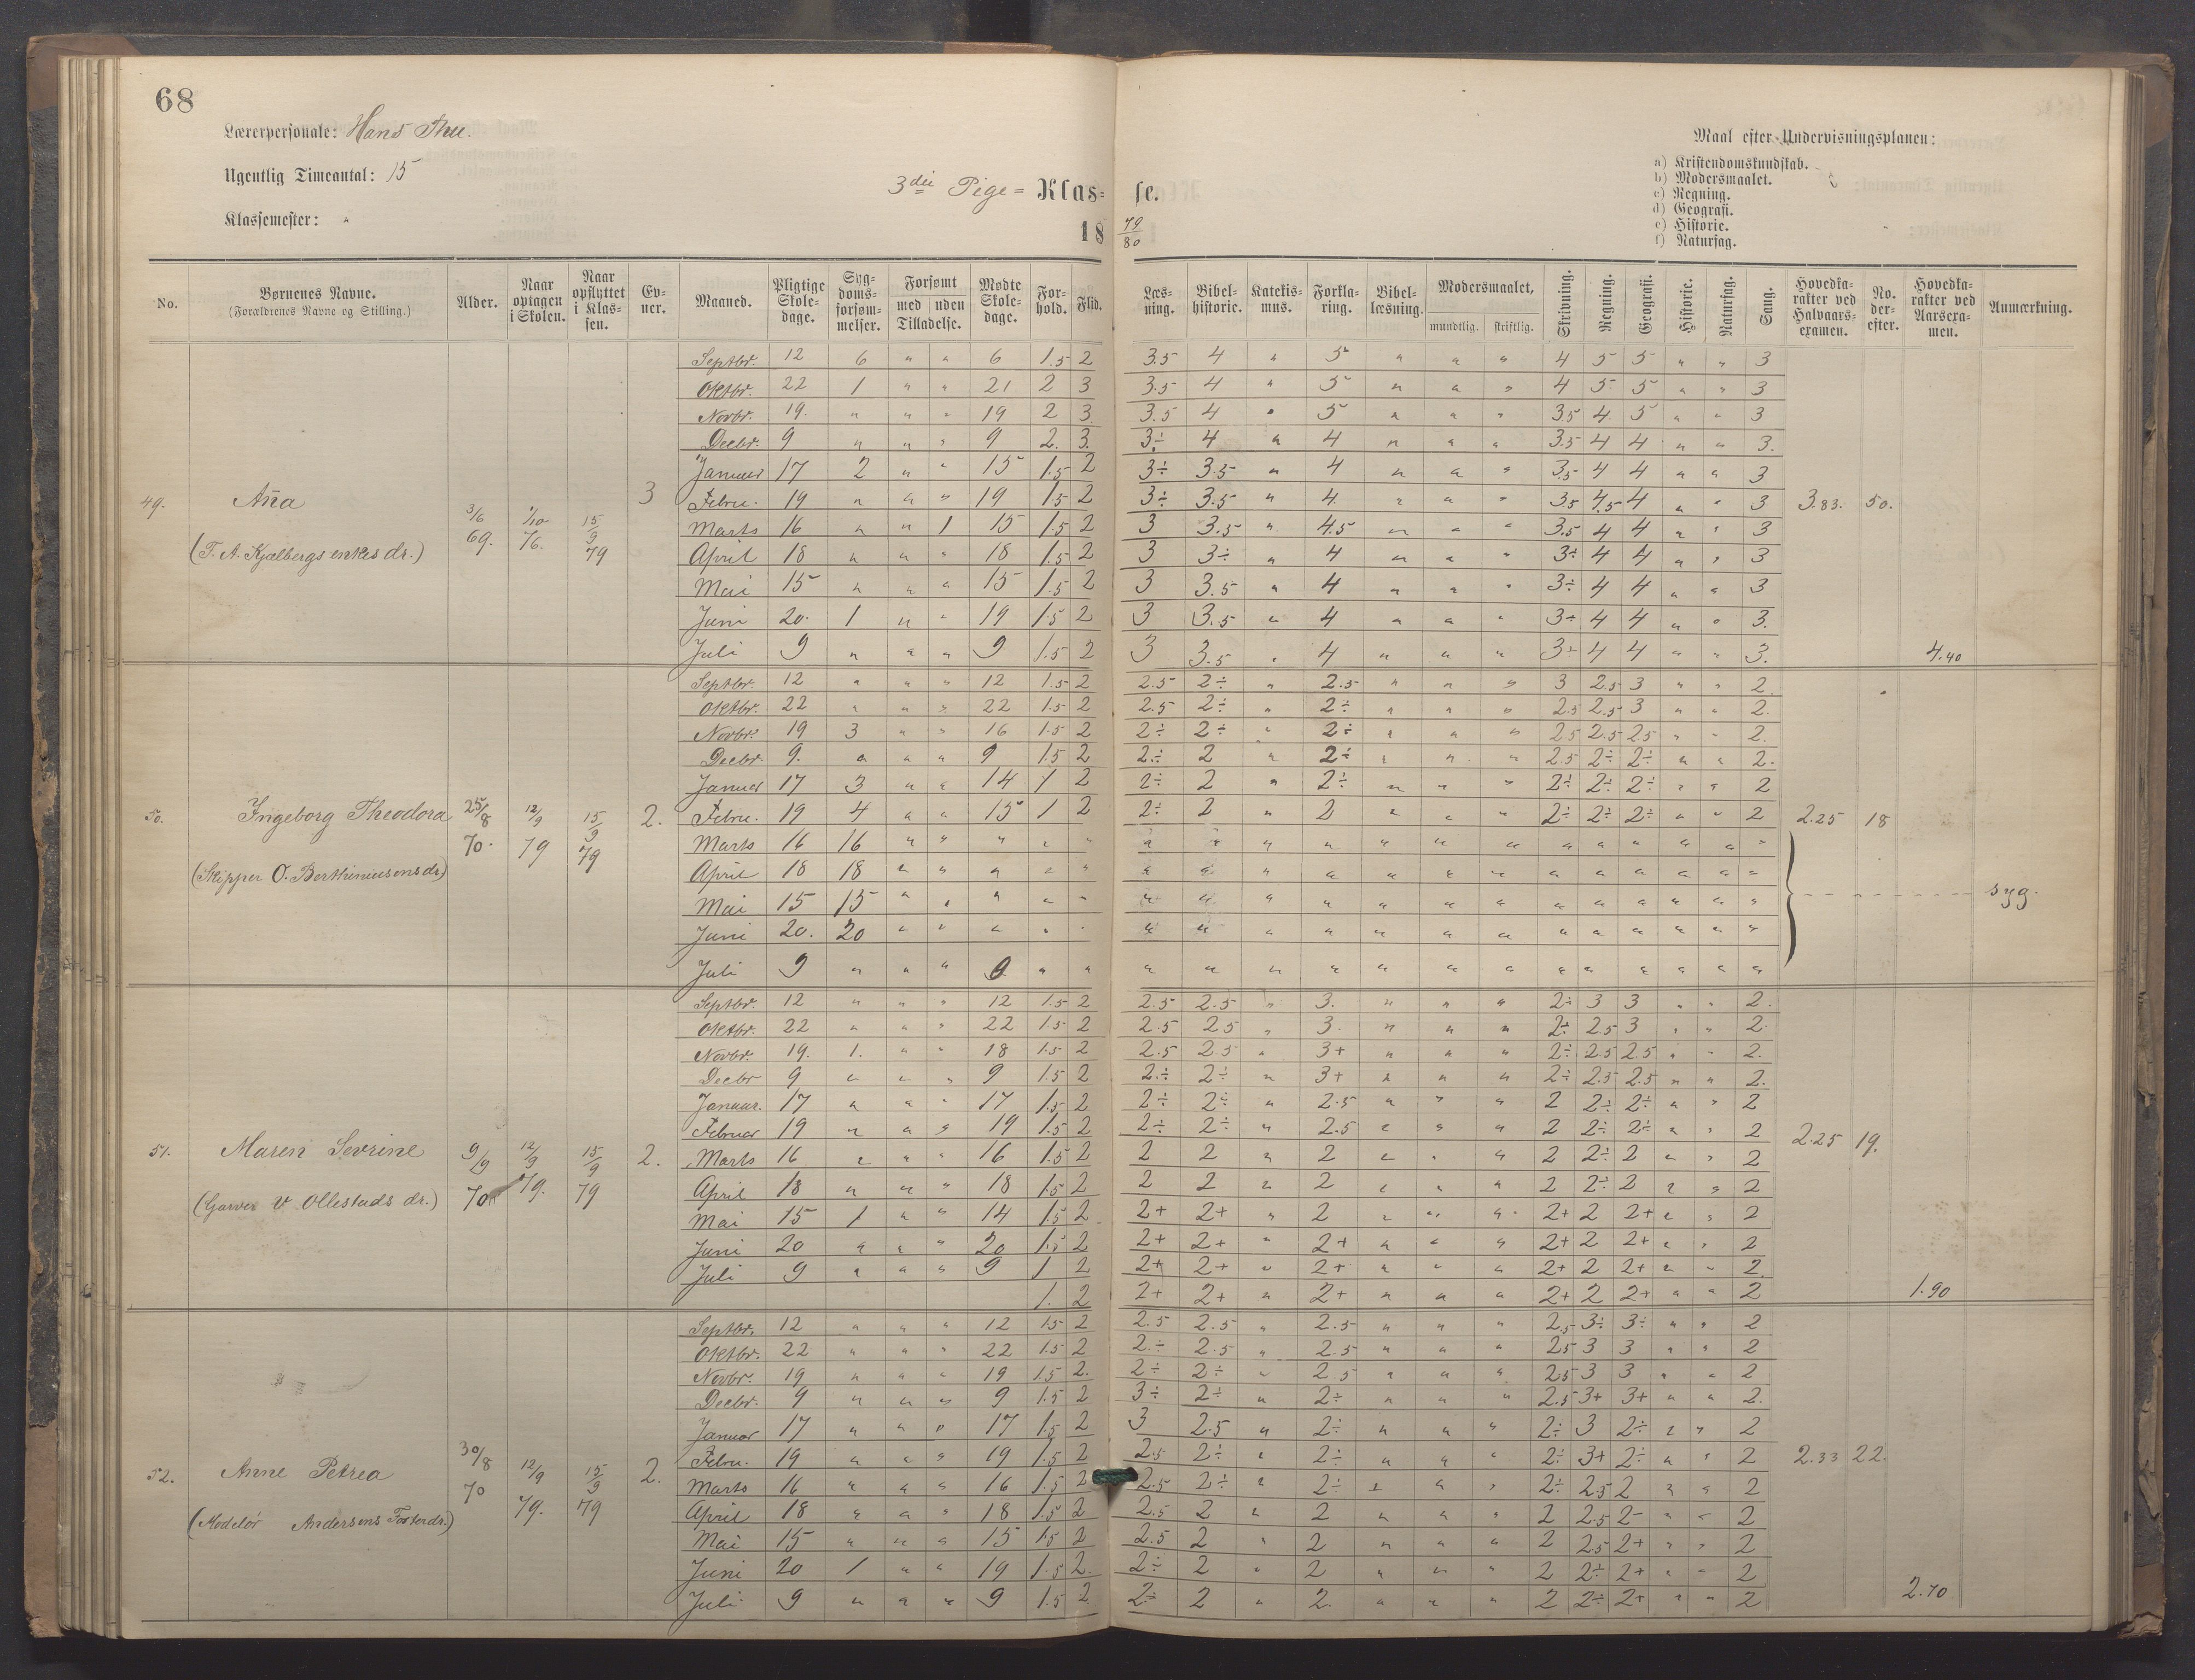 68
Lærerpersonale: Hans Thu.
Ugentlig Timeantal: 15
Klassemester: "
3die Pige= Klas= se.
18 79/80
Maal efter Undervisningsplanen:
a) Kristendomskundskab.
b) Modersmaalet.
c) Regning.
d) Geografi.
e) Historie.
f) Naturfag.
No. Børnenes Navne. (Forældrenes Navne og Stilling.) Alder. Naar optagen i Skolen. Naar opflyttet i Klassen. Evner. Maaned. Pligtige Skoledage. Sygdomsforsømmelser. Forsømt med uden Tilladelse. Mødte Skoledage. Forhold. Flid. Læsning. Bibelhistorie. Katekismus. Forklaring. Bibellæsning. Modersmaalet, mundtlig. skriftlig. Skrivning. Regning. Geografi. Historie. Naturfag. Sang. Hovedkarakter ved Halvaarsexamen. No. derefter. Hovedkarakter ved Aarsexamen. Anmærkning.
49. Aña (T. A. Kjælbergs enkes dr.) 3/6 69. 1/10 76. 15/9 79 3 3.83. 50. 4.40
Septbr. 12 6 " " 6 1.5 2 3.5 4 " 5 " " " 4 5 5 " " 3
Oktbr. 22 1 " " 21 2 3 3.5 4 " 5 " " " 4 5 5 " " 3
Novbr. 19. " " " 19 2 3 3.5 4 " 5 " " " 3.5 4 5 " " 3
Decbr. 9 " " " 9 2. 3. 3÷ 4 " 4 " " " 3.5 4 4 " " 3.
Januar 17 2 " " 15 1.5 2 3÷ 3.5 " 4 " " " 3.5 4 4 " " 3
Febru. 19 " " " 19 1.5 2 3÷ 3.5 " 4 " " " 3.5 4.5 4 " " 3
Marts 16 " " 1 15 1.5 2 3 3.5 " 4.5 " " " 3.5 4 4 " " 3
April 18 " " " 18 1.5 2 3 3÷ " 4 " " " 3÷ 4 4 " " 3
Mai 15 " " " 15 1.5 2 3 3.5 " 4 " " " 3÷ 4 4 " " 3
Juni 20. 1 " " 19 1.5 2 3 3.5 " 4 " " " 3÷ 4 4 " " 3.
Juli 9 " " " 9 1.5 2 3 3.5 " 4 " " " 3÷ 4 4 " " 3.
50. Ingeborg Theodora (Skipper O. Berthiniusens dr.) 25/8 70. 12/9 79 15/9 79 2. 2.25 18 syg.
Septbr. 12 " " " 12 1.5 2 2.5 2÷ " 2.5 " " " 3 2.5 3 " " 2.
Oktbr. 22 " " " 22 1.5 2 2.5 2÷ " 2÷ " " " 2.5 2.5 3 " " 2.
Novbr. 19 3 " " 16 1.5 2 2÷ 2÷ " 2÷ " " " 2.5 2.5 2.5 " " 2.
Decbr. 9. " " " 9 1.5 2 2÷ 2 " 2÷ " " " 2.5 2÷ 2÷ " " 2.
Januar 17 3 " " 14 1 2 2÷ 2 " 2÷ " " " 2÷ 2÷ 2÷ " " 2
Febru. 19 4 " " 15 1 2 2÷ 2 " 2 " " " 2÷ 2÷ 2÷ " " 2
Marts 16 16 " " " " " " " " " " " " " " " " " "
April 18 18 " " " " " " " " " " " " " " " " " "
Mai 15 15 " " " " " " " " " " " " " " " " " "
Juni 20. 20 " " " " " " " " " " " " " " " " " "
Juli 9 " " " 0 " " " " " " " " " " " " " " "
51. Maren Sevrine (Garver V. Ollestads dr.) 9/9 70 12/9 79. 15/9 79 2. 2.25 19. 1.90
Septbr. 12 " " " 12 1.5 2 2.5 2.5 " 3. " " " 2÷ 3 3 " " 2.
Oktbr. 22 " " " 22 1.5 2 2.5 2.5 " 3. " " " 2÷ 2.5 3 " " 2.
Novbr. 19. 1. " " 18 1.5 2 2.5 2.5 " 3+ " " " 2÷ 2.5 2.5 " " 2.
Decbr 9 " " " 9 1.5 2 2÷ 2÷ " 3+ " " " 2÷ 2.5 2.5 " " 2.
Januar. 17 " " " 17 1.5 2 2÷ 2÷ " 2.5 " " " 2 2÷ 2÷ " " 2
Februar 19 " " " 19 1.5 2 2÷ 2÷ " 2.5 " " " 2 2÷ 2÷ " " 2
Marts 16 " " " 16 1.5 2 2 2 " 2 " " " 2 2÷ 2 " " 2
April 18 " " " 18 1.5 2 2 2 " 2 " " " 2 2÷ 2 " " 2
Mai 15 1 " " 14 1.5 2 2+ 2+ " 2 " " " 2+ 2 2+ " " 2
Juni 20 " " " 20 1.5 2 2+ 2+ " 2+ " " " 2+ 2 2+ " " 2
Juli 9 " " " 9 1 2 2+ 2+ " 2+ " " " 2+ 2 2+ " " 2
1. 2 2+ 2+ " 2+ " " " 2+ 2 2+ " " 2
52. Anne Petrea (Modelør Andersens Fosterdr.) 30/8 70 12/9 79. 15/9 79 2. 2.33 22. 2.70
Septbr. 12 " " " 12 1.5 2 2.5 2.5 " 2.5 " " " 2.5 3÷ 3÷ " " 2
Oktbr. 22 " " " 22 1.5 2 2÷ 2.5 " 2.5 " " " 2.5 3 3 " " 2
Novbr. 19 " " " 19 1.5 2. 2÷ 2÷ " 2.5 " " " 2.5 3 3 " " 2
Decbr. 9 " " " 9 1.5 2 3÷ 2÷ " 2÷ " " " 2.5 3+ 3+ " " 2.
Januar 17 " " " 17 1.5 2 3 2.5 " 2÷ " " " 2÷ 3 2÷ " " 2
Febru. 19 " " " 19 1.5 2 2.5 2÷ " 2÷ " " " 2÷ 3+ 2÷ " " 2
Marts 16 " " " 16 1.5 2 2.5 2÷ " 2÷ " " " 2÷ 2.5 2 " " 2
April 18 " " " 18 1.5 2 2.5 2 " 2 " " " 2 2.5 2- " " 2
Mai 15 " " " 15 1.5 2 2.5 2 " 2 " " " 2 2.5 2+ " " 2
Juni 20 1 " " 19 1.5 2. 2÷ 2 " 2 " " " 2 2÷ 2+ " " 2
Juli 9 " " " 9 1.5 2 2÷ 2 " 2. " " " 2 2÷ 2+ " " 2